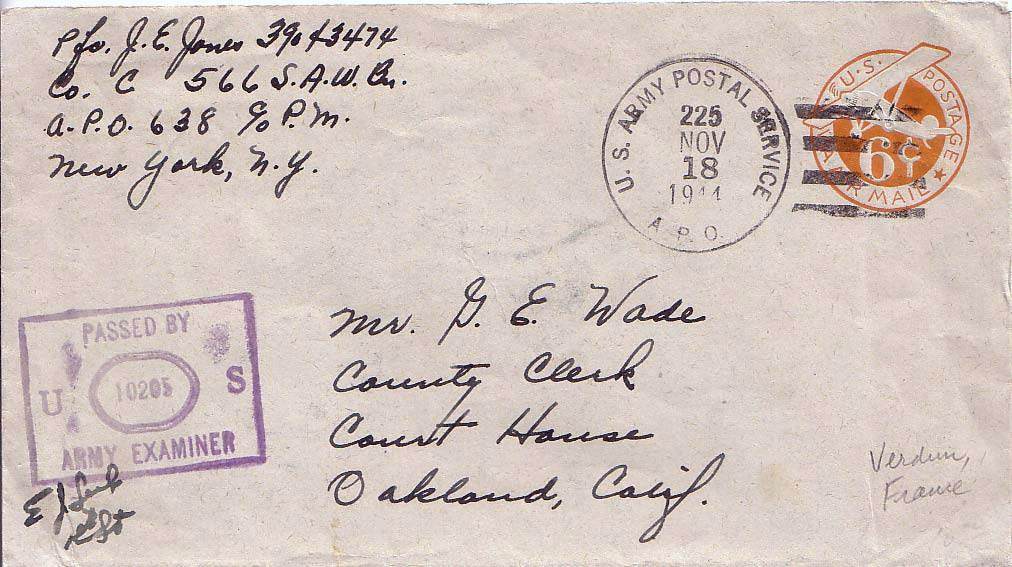 Pfc. J. E. Jones 39043474
Co. C 566 S.A.W. Bn.
A.P.O. 638 c/o P.M.
New York, N.Y.
U.S. ARMY POSTAL SERVICE
225
NOV
18
1944
A.P.O.
U.S. POSTAGE
6¢
AIR MAIL
PASSED BY
U 10205 S
ARMY EXAMINER
Mr. G. E. Wade
County Clerk
Court House
Oakland, Calif.
Verdun,
France